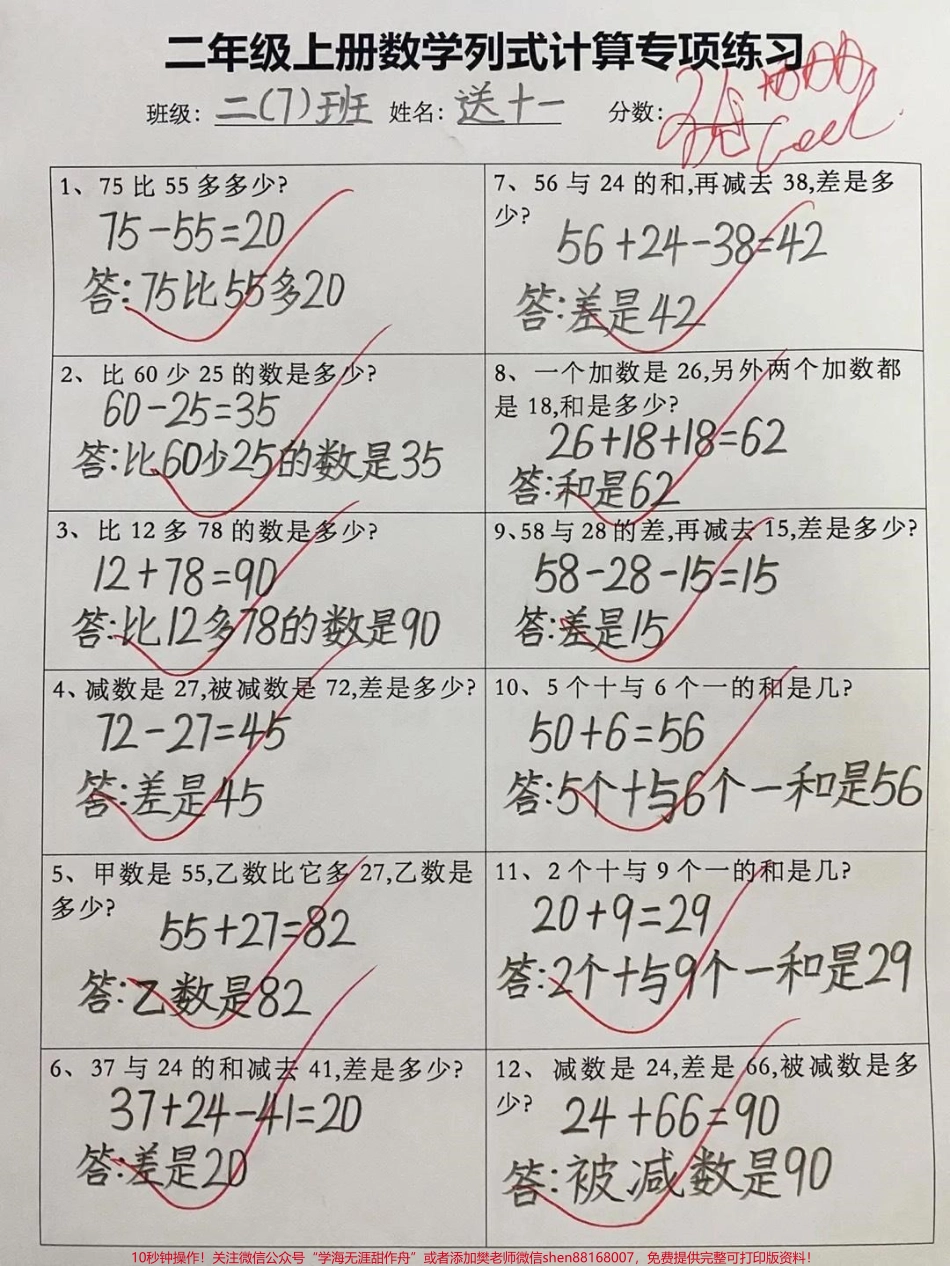 二年级上册数学列式计算专项练习
班级：二(7)班 姓名：送十一 分数：
1、75 比 55 多多少?
75-55=20
答:75比55多20
2、比 60 少 25 的数是多少?
60-25=35
答:比60少25的数是35
3、比 12 多 78 的数是多少?
12+78=90
答:比12多78的数是90
4、减数是 27,被减数是 72,差是多少?
72-27=45
答:差是45
5、甲数是 55,乙数比它多 27,乙数是
多少?
55+27=82
答:乙数是82
6、37 与 24 的和减去 41,差是多少?
37+24-41=20
答:差是20
7、56 与 24 的和,再减去 38,差是多
少?
56+24-38=42
答:差是42
8、一个加数是 26,另外两个加数都
是 18,和是多少?
26+18+18=62
答:和是62
9、58 与 28 的差,再减去 15,差是多少?
58-28-15=15
答:差是15
10、5 个十与 6 个一的和是几?
50+6=56
答:5个十与6个一和是56
11、2 个十与 9 个一的和是几?
20+9=29
答:2个十与9个一和是29
12、减数是 24,差是 66,被减数是多
少?
24+66=90
答:被减数是90
10秒钟操作！关注微信公众号“学海无涯甜作舟”或者添加樊老师微信shen88168007，免费提供完整可打印版资料！